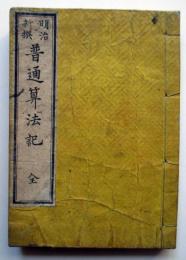 明治
新撰
普通算法記
全